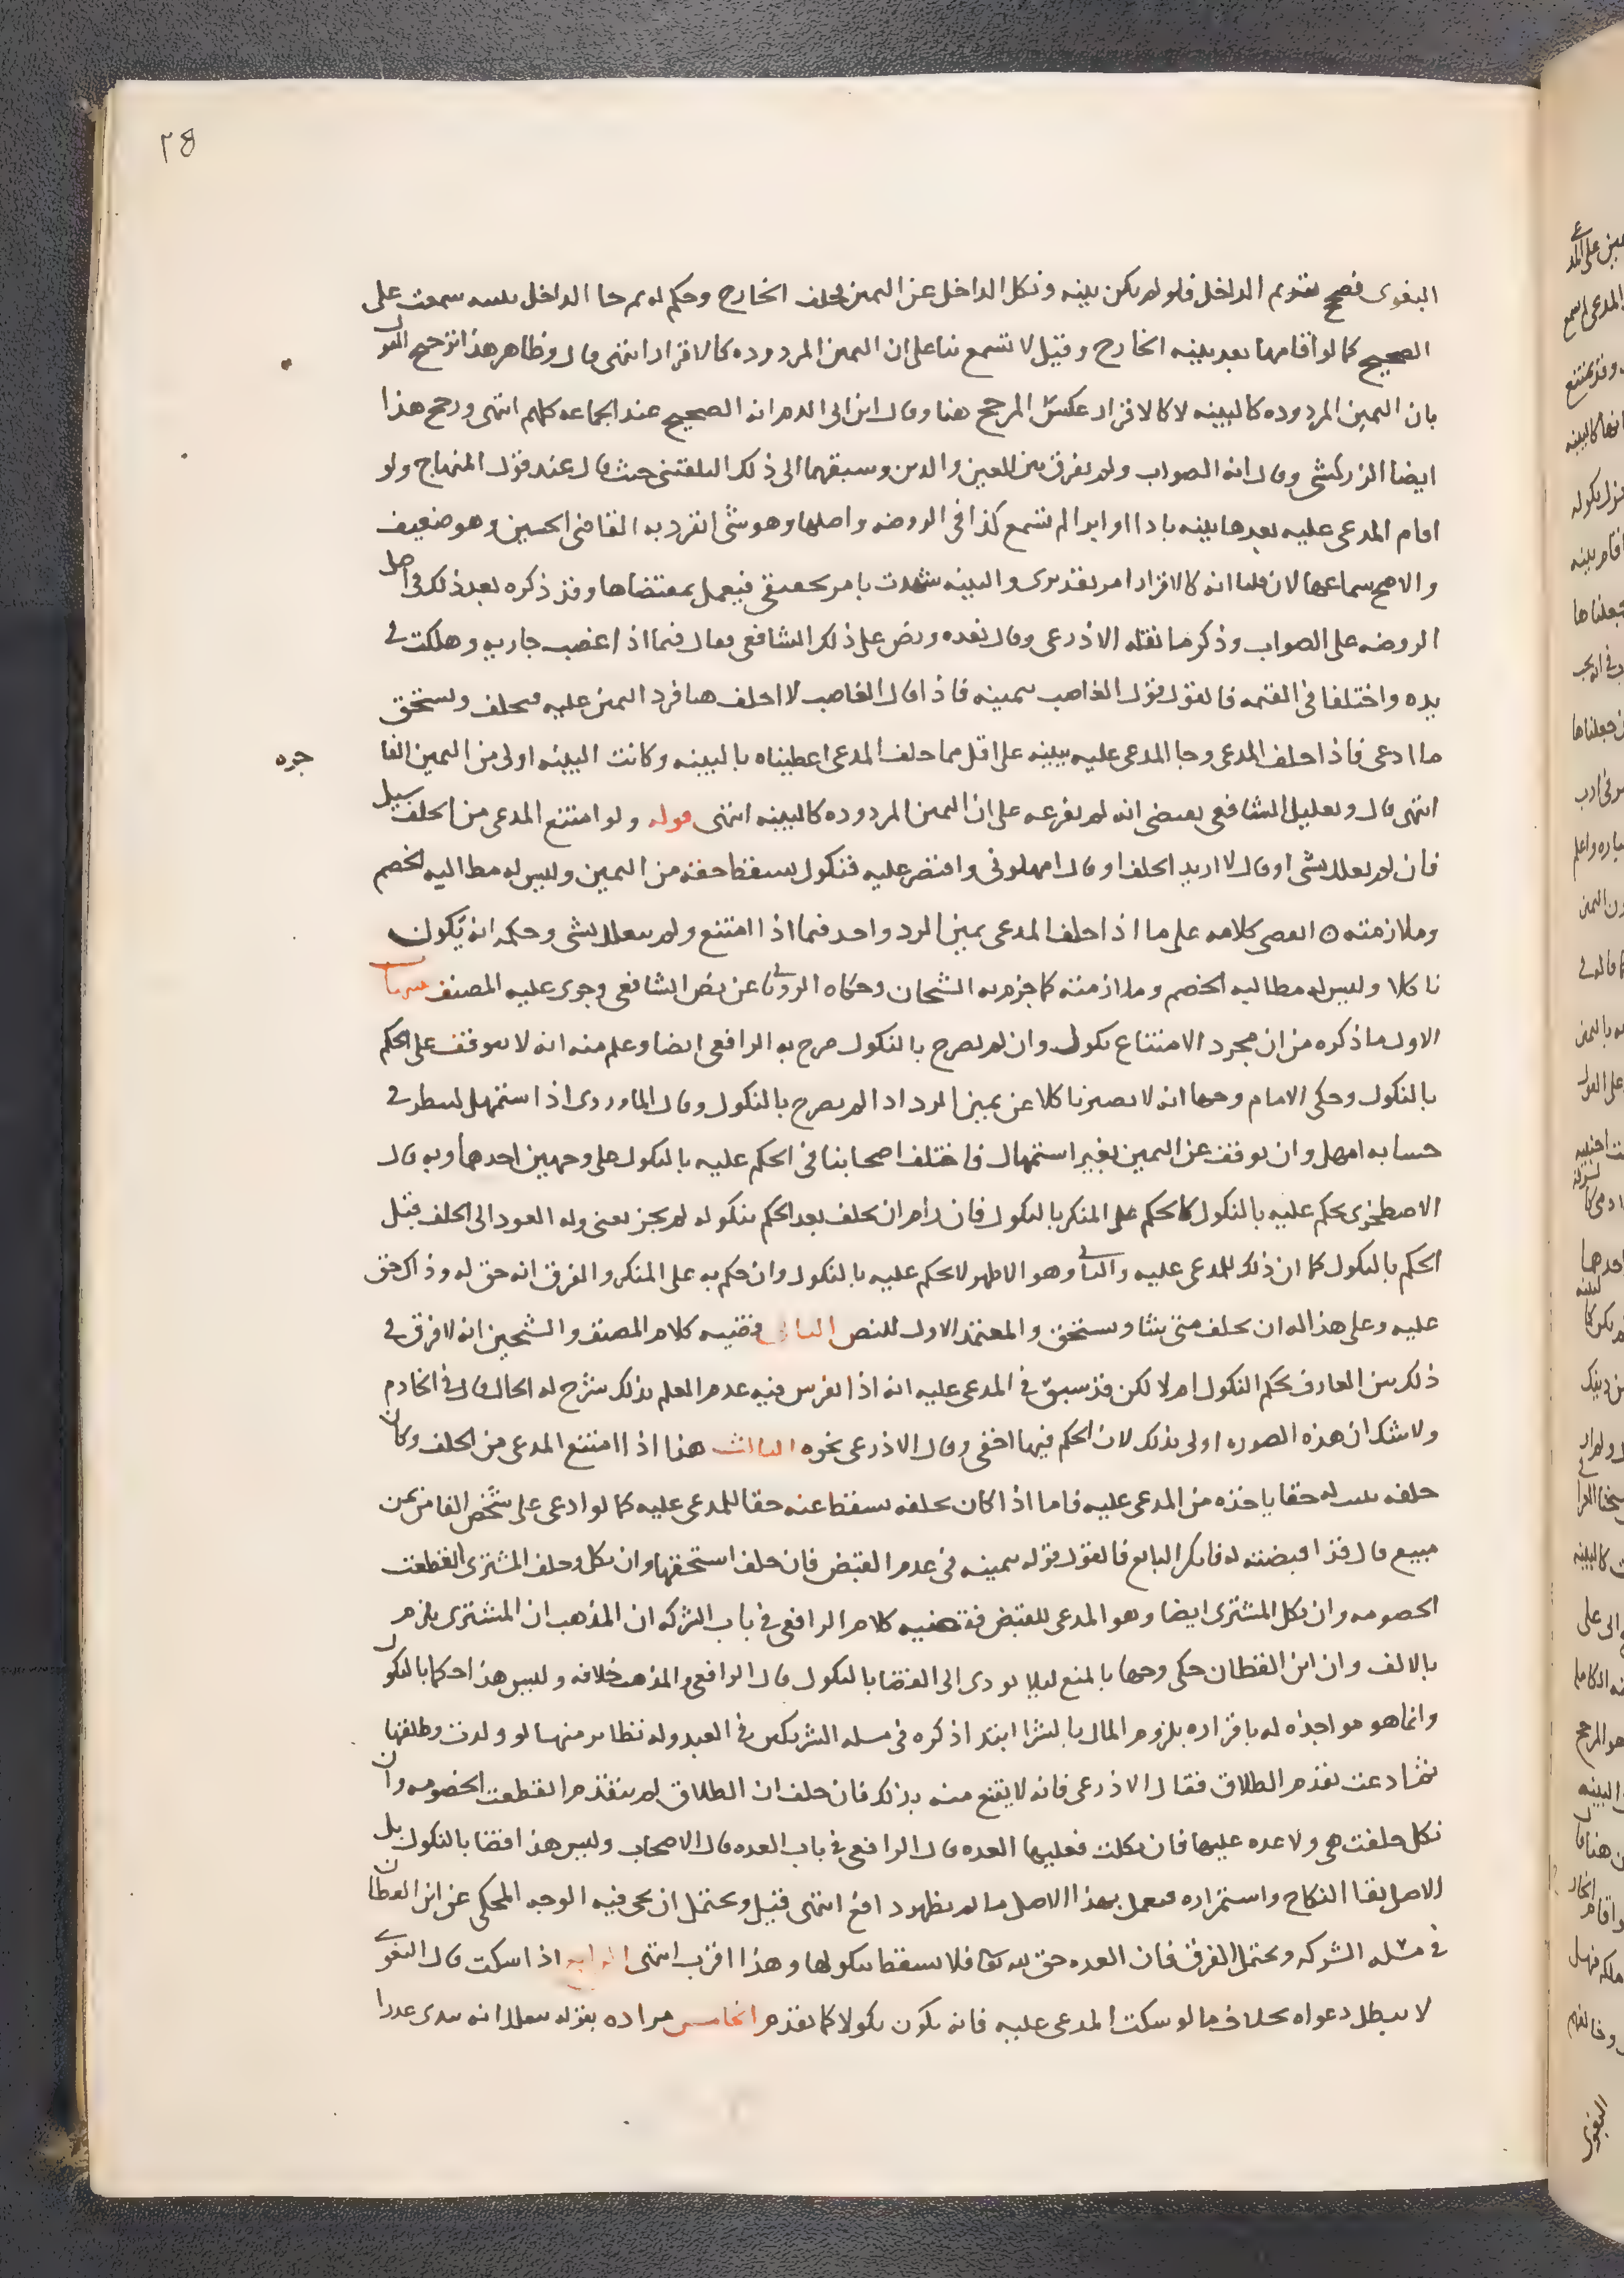 ٢٨
البغوى فصح تقديم الداخل فلو لم يكن بينه ونكل الداخل عن اليمين فحلف الخارج وحكم له ثم جا الداخل ببينه سمعت على
الصحيح كما لو اقامها بعد بينه الخارج وقيل لا تسمع بنا على ان اليمين المردوده كالاقرار انتهى قال وظاهر هذا ترجيح القول
بان اليمين المردوده كالبينه لا كالاقرار عكس المرجح هنا وقال ابن ابى الدم انه الصحيح عند الجماعه كلهم انتهى ورجح هذا
ايضا الزركشى وقال انه الصواب ولم يفرق بين العين والدين وسبقهما الى ذلك البلقينى حيث قال عند قول المنهاج ولو
اقام المدعى عليه بعدها بينه بادا او ابرا لم تسمع كذا فى الروضه واصلها وهو شى انفرد به القاضى الحسين وهو ضعيف
والاصح سماعها لان قلنا انه كالاقرار امر تقديرى والبينه شهدت بامر تحقيقى فيعمل بمقتضاها وقد ذكره بعد ذلك فى اصل
الروضه على الصواب وذكر ما نقله الاذرعى وقال بعده ونص على ذلك الشافعى فقال فيما اذا غصب جاريه وهلكت فى
يده واختلفا فى القيمه فالقول قول الغاصب بيمينه فاذا قال الغاصب لا احلف هنا فرد اليمين عليه فيحلف ويستحق
ما ادعى فاذا حلف المدعى وجا المدعى عليه ببينه على اقل مما حلف المدعى اعطيناه بالبينه وكانت البينه اولى من اليمين الفا
جره
انتهى قال وتعليل الشافعى يقتضى انه لم يفرعه على ان اليمين المردوده كالبينه انتهى قوله ولو امتنع المدعى من الحلف سيل
فان لم يعلل بشى او قال لا اريد الحلف او قال امهلونى واقتصر عليه فنكول يسقط حقه من اليمين وليس له مطالبه الخصم
وملازمته ه اقتضى كلامه على ما اذا حلف المدعى يمين الرد واحد فيما اذا امتنع ولم يتعلل بشى وحكمه انه يكون
ناكلا وليس له مطالبه الخصم وملازمته كما جزم به الشيخان وحكاه الرويانى عن نص الشافعى وجرى عليه المصنف
الاول ما ذكره من ان مجرد الامتناع نكول وان لم يصرح بالنكول صرح به الرافعى ايضا وعلم منه انه لا يتوقف على الحكم
بالنكول وحكى الامام وجها انه لا يصير ناكلا عن يمين الرد اذا لم يصرح بالنكول وقال الماوردى اذا استمهل لينظر فى
حسابه امهل وان توقف عن اليمين بغير استمهال فاختلف اصحابنا فى الحكم عليه بالنكول على وجهين احدهما وبه قال
الاصطخرى يحكم عليه بالنكول كما يحكم على المنكر بالنكول فان رام ان يحلف بعد الحكم بنكوله لم يجز يعنى وله العود الى الحلف قبل
الحكم بالنكول كما ان ذلك للمدعى عليه والثانى وهو الاظهر لا يحكم عليه بالنكول وان حكم به على المنكر والفرق انه حق له وذاك حق
عليه وعلى هذا له ان يحلف متى شا ويستحق والمعتمد الاول للنص الثانى قضيه كلام المصنف والشيخين انه لا فرق فى
ذلك بين العارف بحكم النكول ام لا لكن قد سبق فى المدعى عليه انه اذا تفرس فيه عدم العلم بذلك شرح له الحال قال فى الخادم
ولا شك ان هذه الصوره اولى بذلك لان الحكم فيها اخفى وقال الاذرعى نحوه الثالث هذا اذا امتنع المدعى من الحلف وكان
حلفه يثبت له حقا ياخذه من المدعى عليه فاما اذا كان بحلفه يسقط عنه حقا للمدعى عليه كما لو ادعى على شخص الفا من ثمن
مبيع قال قد اقبضته له فانكر البايع فالقول قوله بيمينه فى عدم القبض فان حلف استحقها وان نكل وحلف المشترى انقطعت
الخصومه وان نكل المشترى ايضا وهو المدعى للقبض فقضيه كلام الرافعى فى باب الشركه ان المذهب ان المشترى يلزم
بالالف وان ابن القطان حكى وجها بالمنع ليلا يودى الى القضا بالنكول قال الرافعى والمذهب خلافه وليس هذا حكما بالنكول
وانما هو مواخذه له باقراره بلزوم المال بالشرا ابتدا ذكره فى مسله الشريكين فى العبد وله نظاير منها لو ولدت وطلقها
ثم ادعت تقدم الطلاق فقال الاذرعى فانه لا يقنع منه بذلك فان حلف ان الطلاق لم يتقدم انقطعت الخصومه وان
نكل حلفت هى ولا عده عليها فان نكلت فعليها العده قال الرافعى فى باب العده قال الاصحاب وليس هذا قضا بالنكول بل
الاصل بقا النكاح واستمراره فيعمل بهذا الاصل ما لم يظهر دافع انتهى قيل ويحتمل ان يجى فيه الوجه المحكى عن ابن القطان
فى مسله الشركه ويحتمل الفرق فان العده حق لله تعالى فلا يسقط بنكولها وهذا اقرب انتهى الرابع اذا سكت قال البغوى
لا يبطل دعواه بخلاف ما لو سكت المدعى عليه فانه يكون نكولا كما تقدم الخامس مراده بقوله يتعلل انه يبدى عذرا